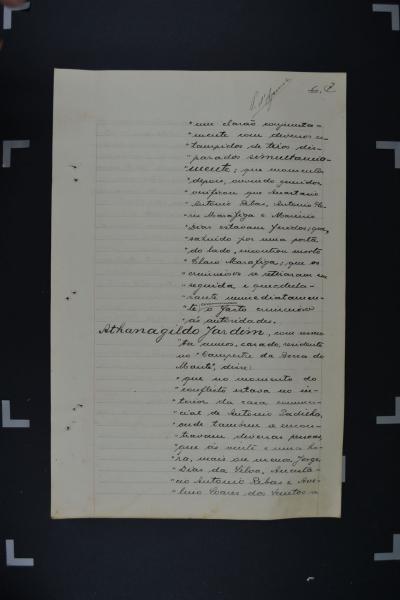 "um clarão conjunta-
"mente com diversos es-
"tampidos de tiros dis-
"parados simultanea-
"mente; que momentos
"depois, ouvindo gemidos,
"verificou que Anastacio
"Antonio Rebas, Antonio
Marafiga e
"Dias estavam feridos; que,
"sahindo por uma porta
"do lado, encontrou morto
Marafiga; que os
"criminosos se retiraram em
"seguida e que
immediatamen-
"te o facto criminoso
"ás autoridades.
Athanagildo Jardim, com
annos, casado, residente
no "Campestre da Serra do
Monte", disse:
"que no momento do
"conflicto estava no in-
"terior da casa commer-
"cial de Antonio
"onde tambem se encon-
"travam diversas pessoas;
"que ás vinte e uma ho-
"ra, mais ou menos, Jorge
"Dias da Silva, Anasta-
"cio Antonio Rebas e Ave-
"lino Soares dos Santos